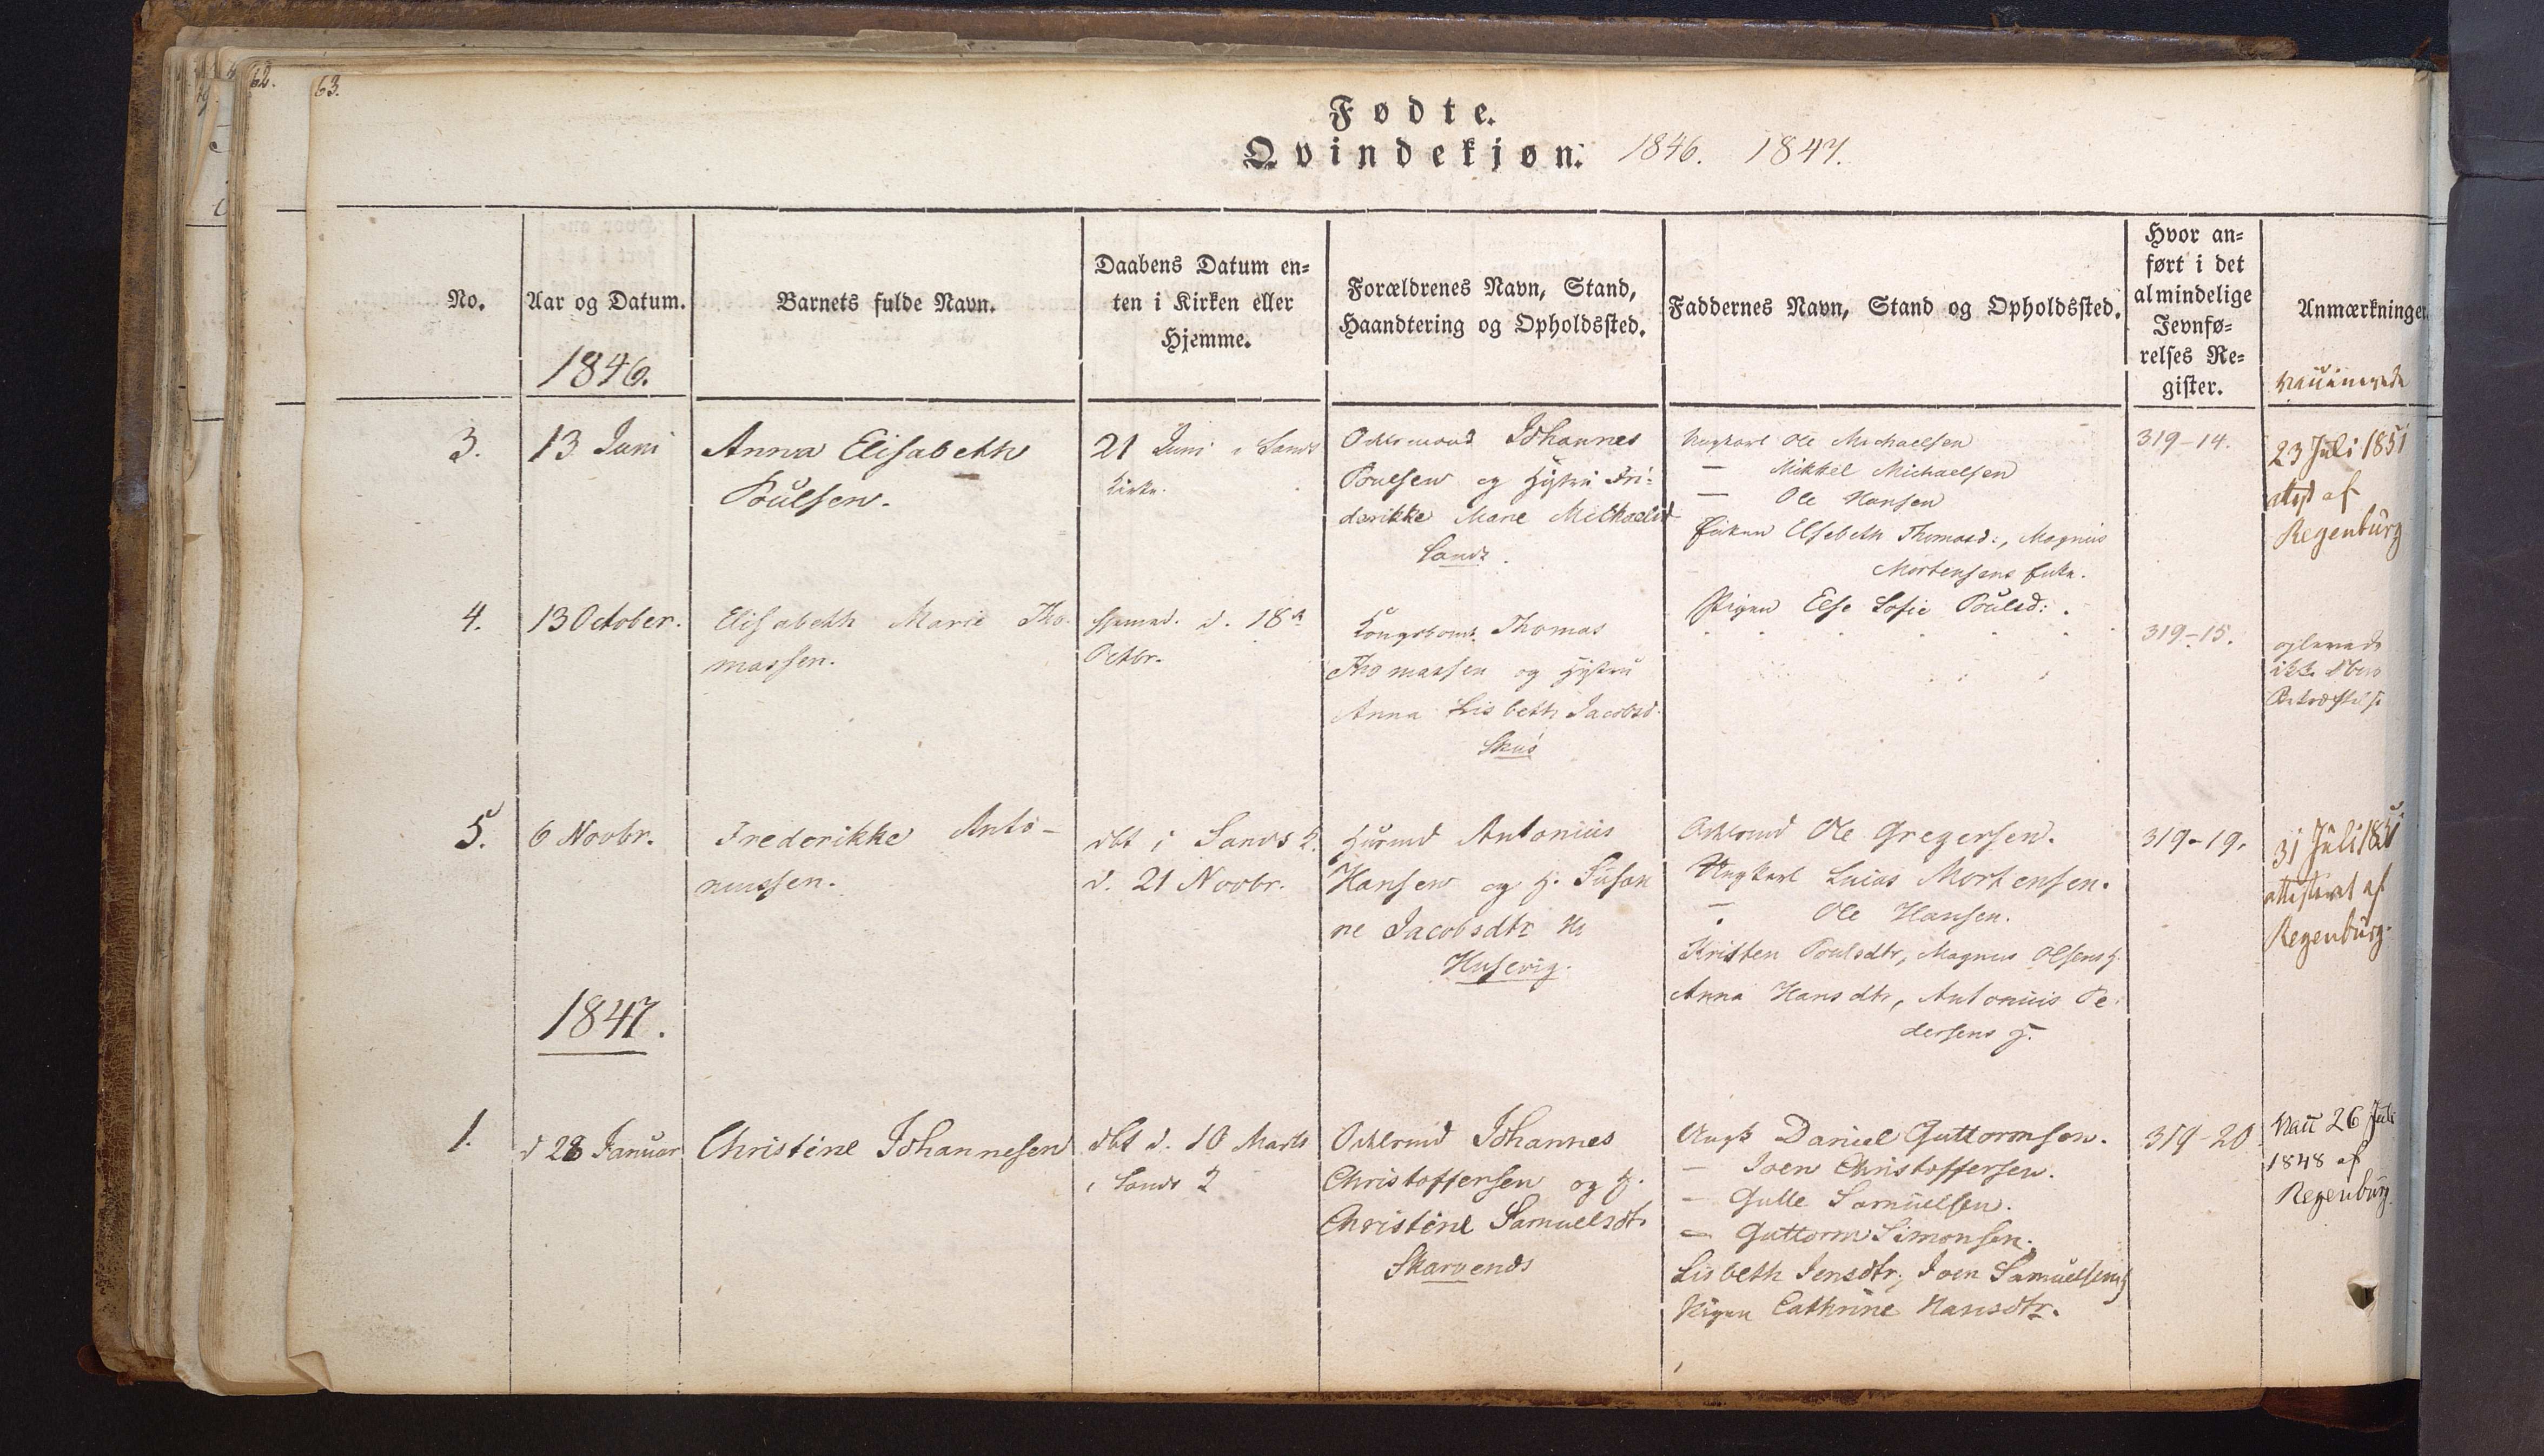 62.
63.
Fødte.
Qvindekjøn. 1846. 1847.
No.
Aar og Datum.
Barnets fulde Navn.
Daabens Datum en=
ten i Kirken eller
Hjemme.
Forældrenes Navn, Stand,
Haandtering og Opholdssted.
Faddernes Navn, Stand og Opholdssted.
Hvor an=
ført i det
almindelige
Jevnfø=
relses Re=
gister.
Anmærkninger
Vaccinerede
1846.
3.
13 Juni
Anna Elisabeth
Poulsen.
21 Juni i Sands
Kirke.
Johannes
Poulsen og Hustru Fri-
derikke Marie Michaelsd
Sand.
Ungkarl Ole Michaelsen
— Mikkel Michaelsen
— Ole Hansen
Enken Elsebeth Thomasd:, Magnus
Mortensens Enke.
Pigen Else Sofie Poulsd:.
319-14.
23 Juli 1851
attest af
Regenburg
4.
13 October.
Elisabeth Marie Tho-
massen.
Hjemmed. d. 18d
Octbr.
Kongsbond. Thomas
Thomassen og Hustru
Anna Lisbeth Jacobsd.
Skuö
319-15.
oplevede
ikke
5.
6 Novbr.
Frederikke Anto-
niussen.
dbt i Sands K.
d. 21 Novbr.
Huusmd Antonius
Hansen og H. Susan
ne Jacobsdtr
Husevig.
Ole Gregersen.
Ungkarl Lucas Mortensen.
— Ole Hansen.
Kristen Poulsdtr, Magnus Olsens H.
Anna Hansdtr, Antoniis Pe-
dersens H.
319-19.
31 Juli 1851
attesteret af
Regenburg.
1847.
1.
d 28 Januar
Christine Johannesen
dbt d. 10 Marts
i Sands K
Johannes
Christoffersen og H.
Christine Samuelsdtr
Skarvends
Ungk Daniel Guttormsen.
— Joen Christoffersen.
— Gulle Samuelsen.
— Guttorm Simonsen.
Lisbeth Jensdtr, Joen Samuelsens H
Pigen Cathrine Hansdtr.
319-20
Vacc 26 Juli
1848 af
Regenburg.